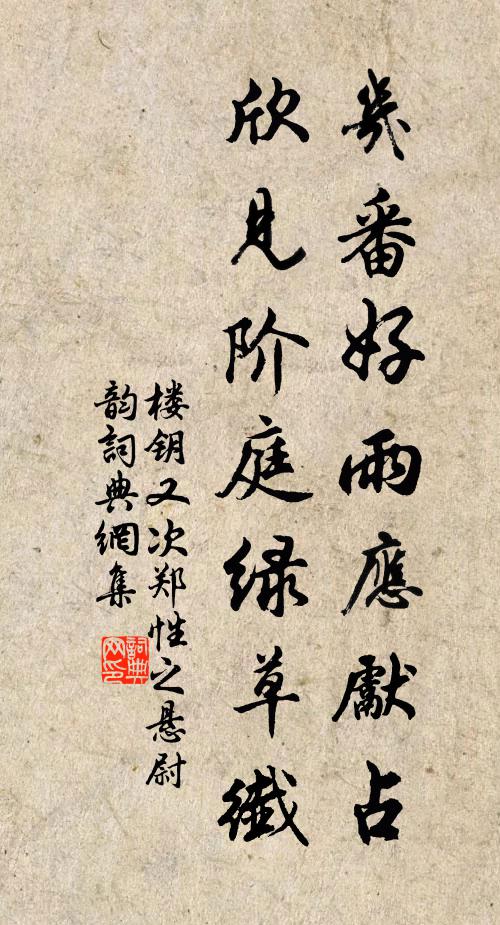 幾番好雨應獻占
欣見阶庭绿草纖
楼钥又次郑性之悬尉
韵詞典網集
詞典网印